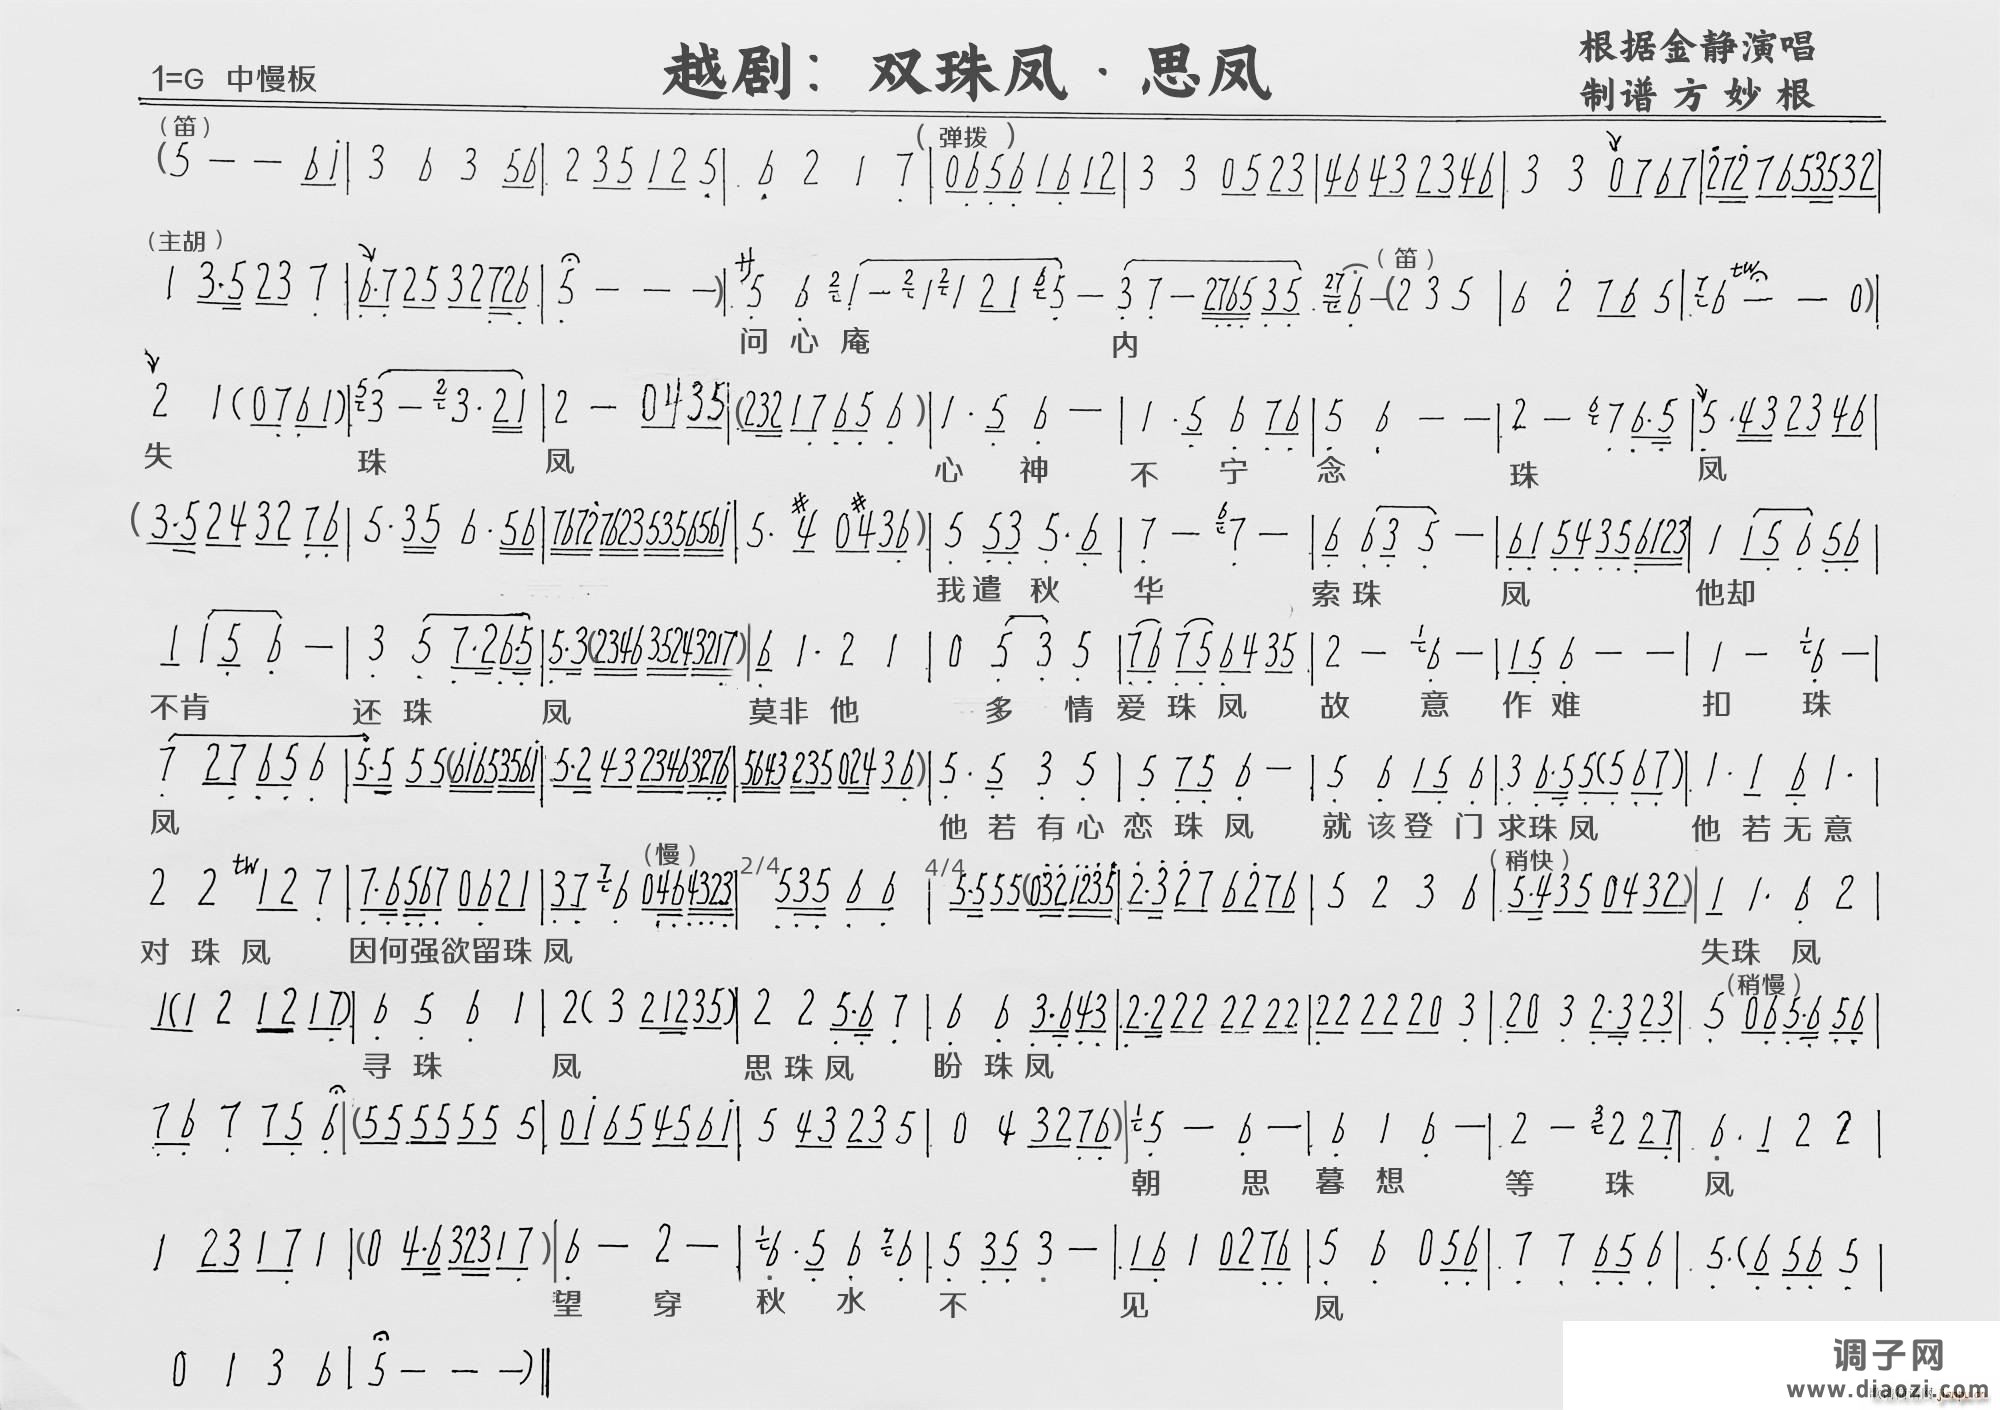 1=G 中慢板
越剧：双珠凤·思凤
根据金静演唱
制谱 方妙根
（笛）
（弹拨）
(5 - - 6i| 3 6 3 56| 2 35 12 5| 6 2 1 7| 06 56 16 12| 3 3 05 23| 46 43 23 46| 3 3 07 67| 272 76 53532|
（主胡）
（笛）
1 3·5 23 7| 6·7 25 32 726| 5 - - -)| 廾5 6 1 - 1 1 21 5 - 3 7 - 2765 35 6 - (2 3 5| 6 2 76 5| 6 - - 0)|
问心庵 内
2 1 (07 61)| 3 - 3·21| 2 - 04 35| (232 17 65 6)| 1·5 6 -| 1·5 6 76| 5 6 - -| 2 - 7 6·5| 5·43 23 46|
失 珠 凤 心 神 不 宁 念 珠 凤
(3·5 24 32 76| 5·35 6·56| 7672 7623 5356 561| 5·#4 0#4 36)| 5 53 5·6| 7 - 7 -| 6 63 5 -| 61 54 35 6123| 1 15 6 56|
我遣 秋 华 索珠 凤 他却
1 15 6 -| 3 5 7·2 6·5| 5·3 (2346 3524 3217)| 6 1·2 1| 0 5 3 5| 76 75 64 35| 2 - 6 -| 15 6 - -| 1 - 6 -|
不肯 还 珠 凤 莫非 他 多 情 爱 珠 凤 故 意 作 难 扣 珠
7 27 65 6| 5·5 55 (6165 3561| 5·2 43 2346 3276| 5643 235 024 36)| 5·5 3 5| 5 75 6 -| 5 6 15 6| 3 6·5 5(5 67)| 1·1 6 1·|
凤 他 若 有 心 恋 珠 凤 就 该 登 门 求珠凤 他 若 无 意
（慢）
2/4
4/4
（稍快）
2 2 tw 12 7| 7·6 567 06 21| 37 6 046 4323| 535 6 6| 5·5 55 (032 1235| 2·3 27 62 76| 5 2 3 6| 5·4 35 04 32)| 1 1·6 2|
对 珠 凤 因何强欲留珠 凤 失珠 凤
（稍慢）
1(1 2 12 17)| 6 5 6 1| 2(3 212 35)| 2 2 5·6 7| 6 6 3·6 43| 2·2 22 22 22| 22 22 20 3| 20 3 2·3 23| 5 06 5·6 56|
寻 珠 凤 思珠 凤 盼 珠 凤
76 7 75 6| (55 55 55 5| 01 65 45 61| 5 43 23 5| 0 4 32 76)| 5 - 6 -| 6 1 6 -| 2 - 2 27| 6·1 2 2|
朝 思 暮 想 等 珠 凤
1 23 17 1| (0 4·6 323 17)| 6 - 2 -| 6·5 6 6| 5 35 3 -| 16 1 02 76| 5 6 0 56| 7 7 65 6| 5·(6 56 5|
望 穿 秋 水 不 见 凤
0 1 3 6| 5 - - -)‖
调子网
www.diaozi.com